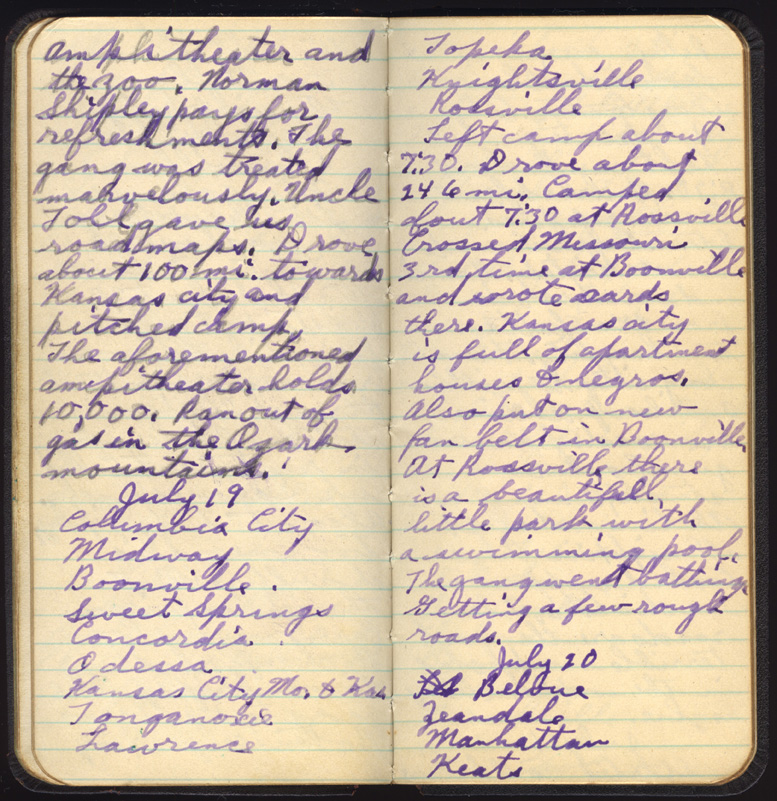 ampitheater and
the zoo. Norman
Shipley pays for
refreshments. The
gang was treated
marvelously. Uncle
Tobe gave us
road maps. Drove
about 100 mi. towards
Kansas city and
pitched camp.
The aforementioned
ampitheater holds
10,000. Ran out of
gas in the Ozark
mountains.
July 19
Columbia City
Midway
Boonville.
Sweet Springs
Concordia.
Odessa
Kansas City Mo. & Kas.
Tonganoxie
Lawrence
Topeka
Knightsville
Rossville
Left camp about
7:30. Drove about
246 mi. Camped
about 7:30 at Rossville
Crossed Missouri
3rd time at Boonville
and wrote cards
there. Kansas city
is full of apartment
houses & negros.
Also put on new
fan belt in Boonville
At Rossville there
is a beautifull
little park with
a swimming pool.
The gang went bathing
Getting a few rough
roads.
July 20
Belvue
Zeandale
Manhattan
Keats